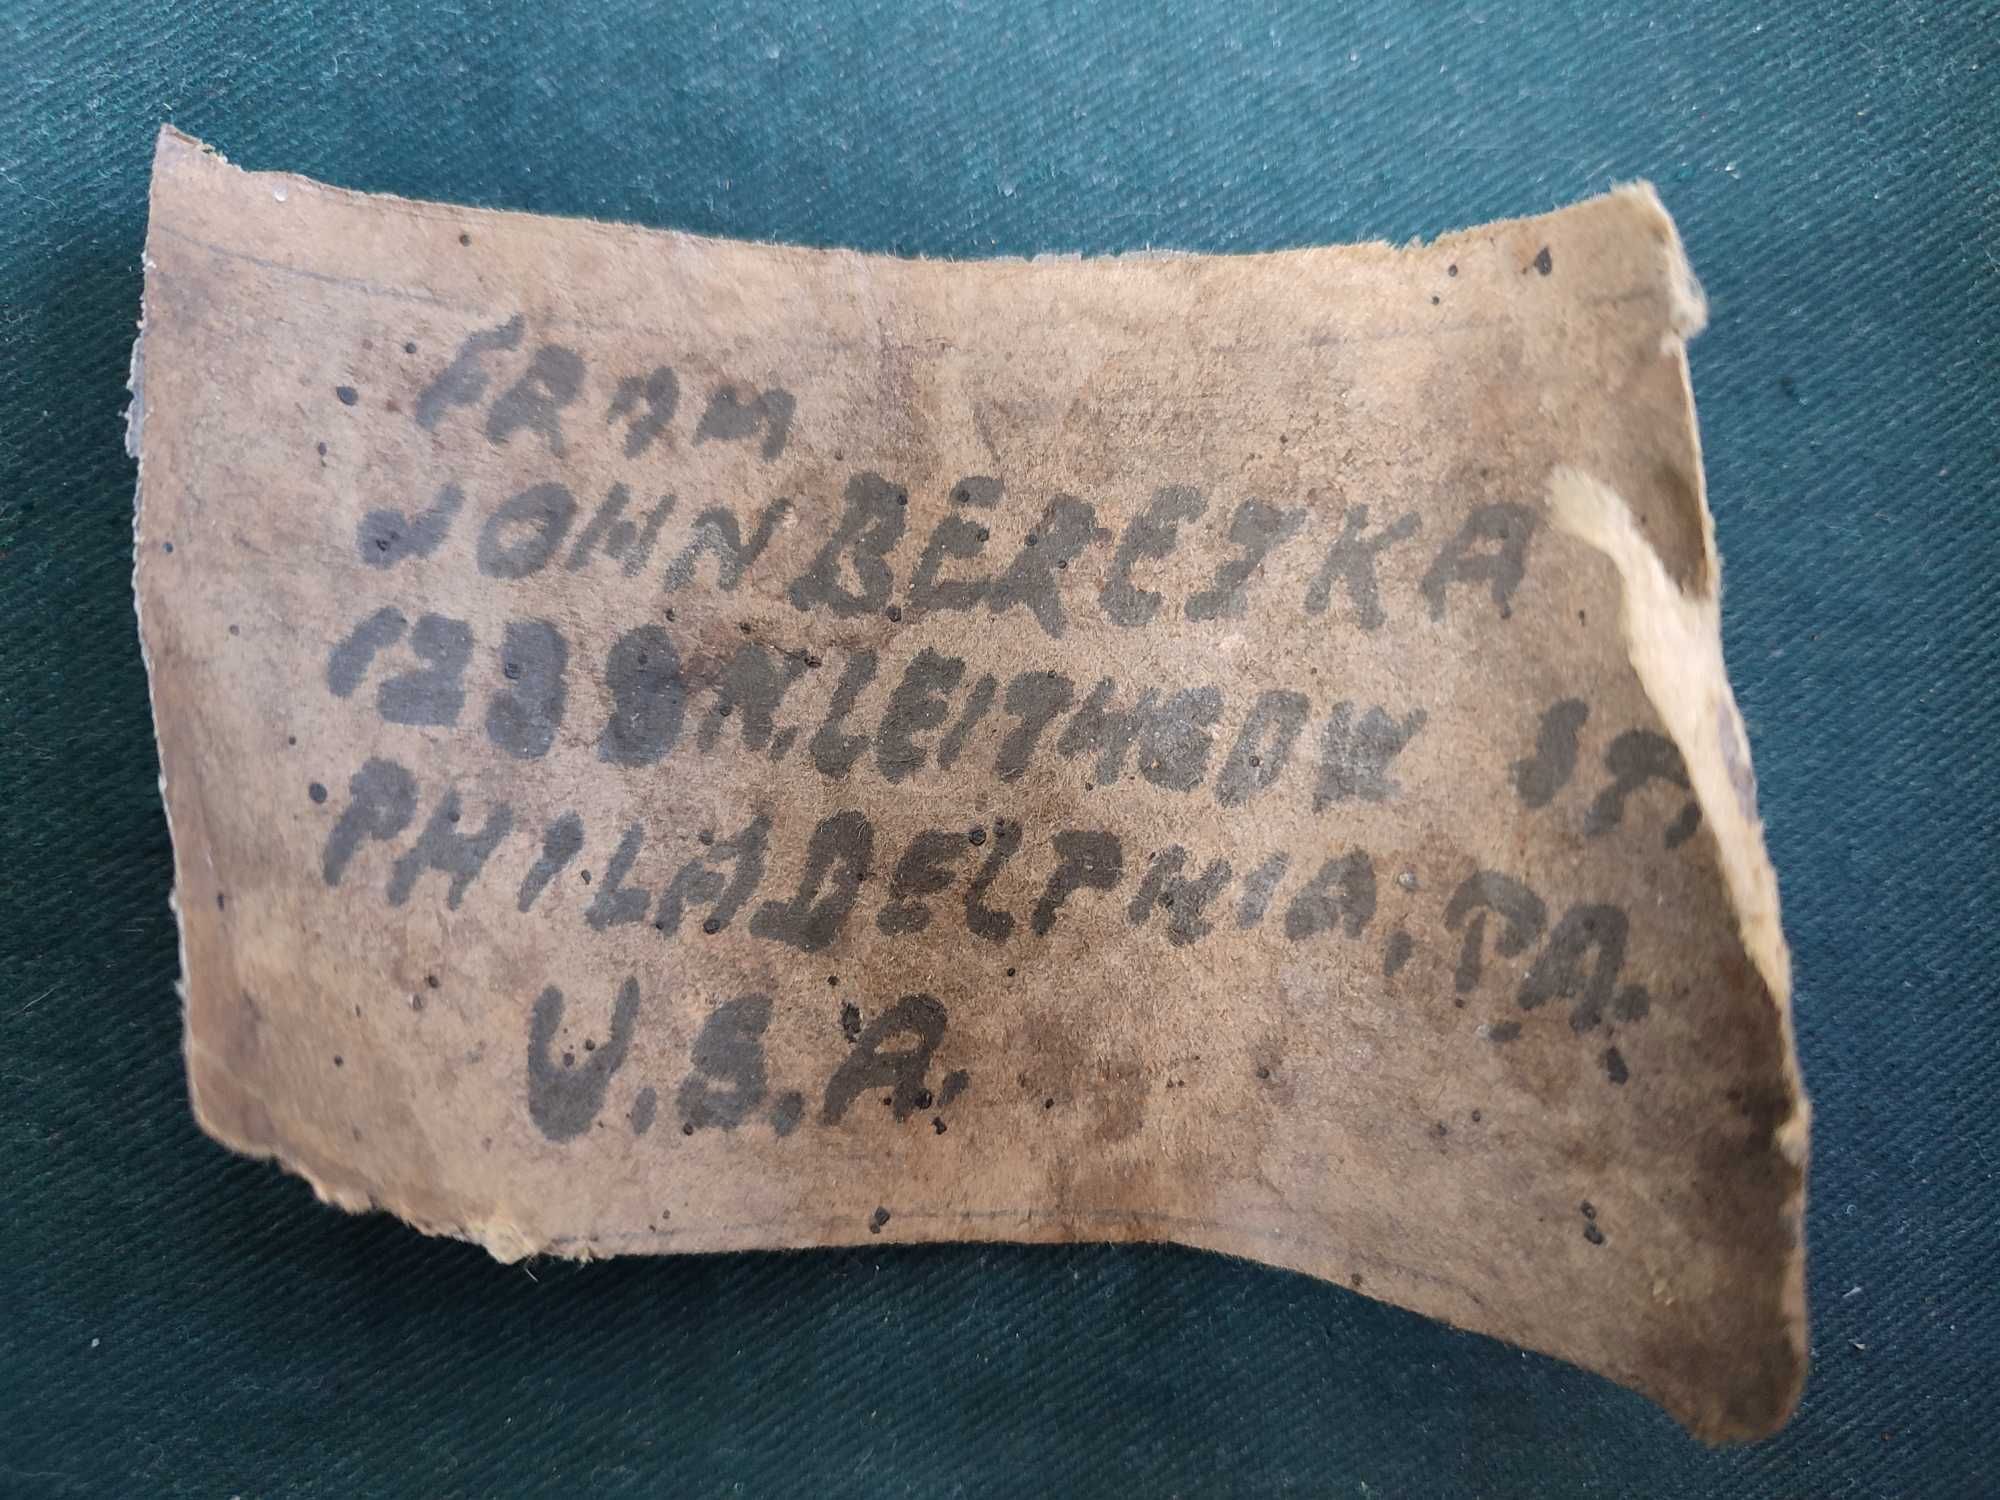 FROM
JOHN BERESKA
1238 N. LEITHGOW ST
PHILADELPHIA, PA.
U.S.A.